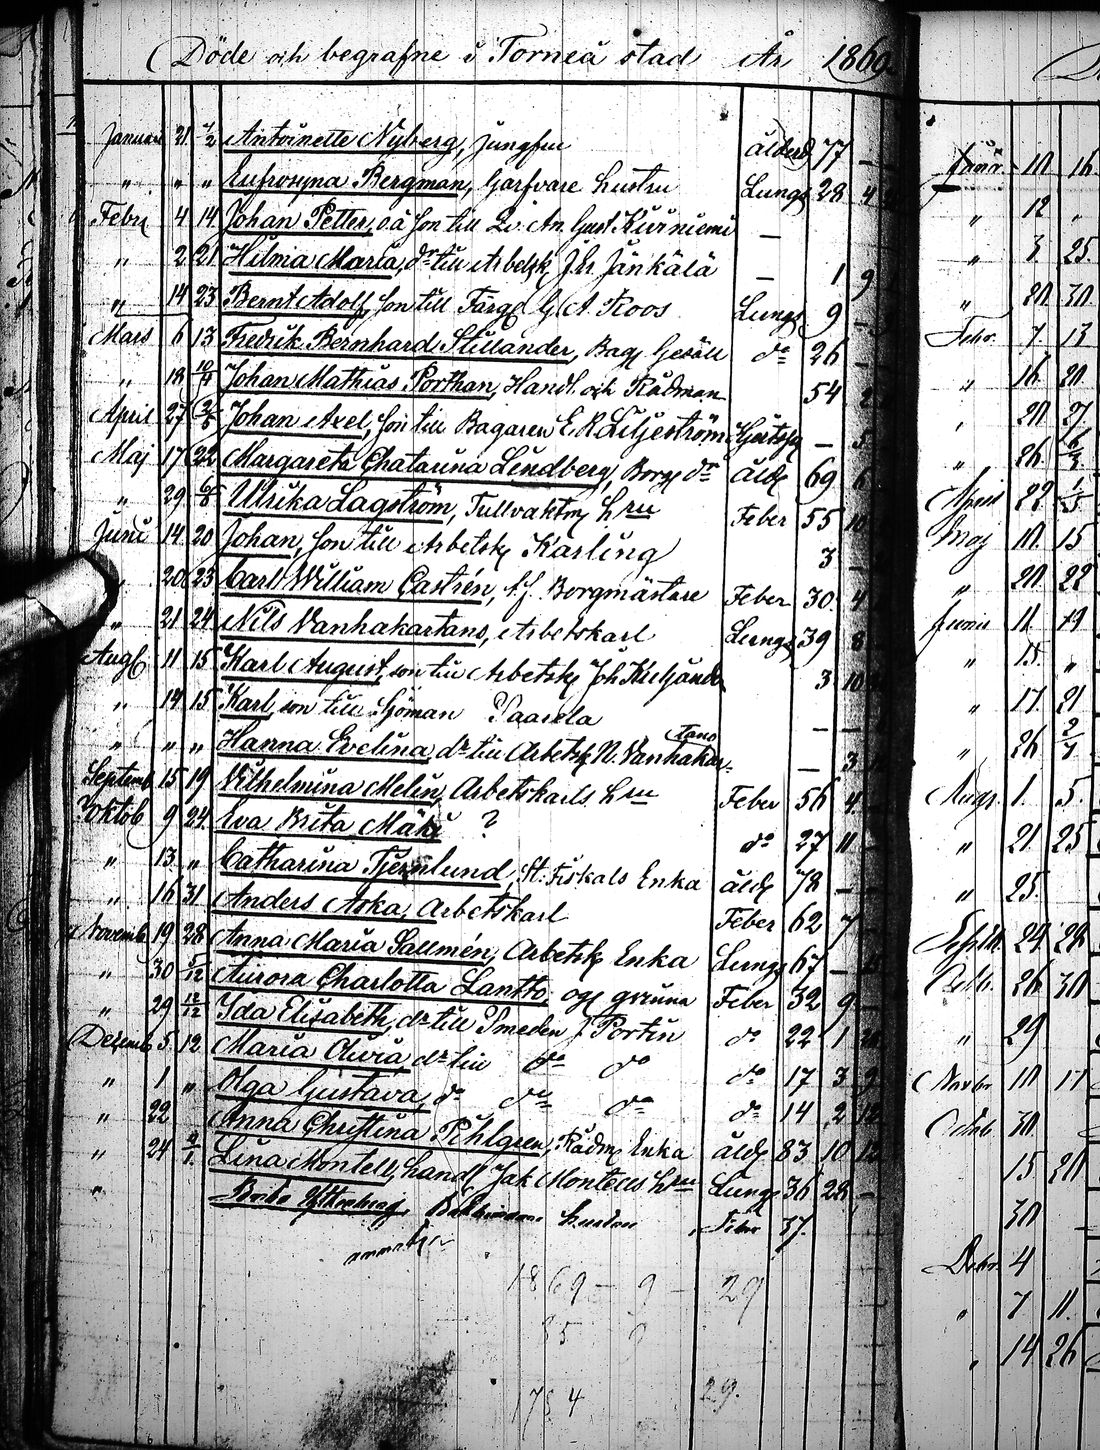 Döde och begrafne i Torneå stad År 1869
Januari 21 7/2 Antoinette Nyberg, Jungfru ålderd 77 —
" " " Eufrosyna Bergman, Garfvare hustru Lungs 28 4
Febru 4 14 Johan Petter, o.ä son till Gust Kurniemi —
" 2 21 Hilma Maria, dr till Arbetsk J. Jänkälä — 1 9
" 14 23 Bernt Adolf, son till Färg G. A. Roos Lungs 9 —
Mars 6 13 Fredrik Bernhard Stillander, Bag Gesäll do 26 —
" 18 Johan Mathias Porthan, Handl. och Rådman 54 2
April 27 2/5 Johan Axel, son till Bagaren E. R. Liljeström — 5
Maj 17 22 Margareta Chatarina Lindberg, Borg dr åld 69 6
" 29 6/6 Ulrika Lagström, Tullvaktm hru Feber 55 10
Juni 14 20 Johan, son till Arbetsk Karling 3 —
" 20 23 Carl William Castrén, t.f. Borgmästare Feber 30 4
" 21 24 Nils Vanhakartano, Arbetskarl Lungs 39 8
Aug 11 15 Karl August, son till Arbetsk Joh 3 10
" 14 15 Karl, son till Sjöman Paasela — —
" " " Hanna Evelina, dr till Arbetsk N. Vanhakar- tano — 3
Septemb 15 19 Vilhelmina Melin, Arbetskarls hru Feber 56 4
Oktob 9 24 Eva Brita Mäki ? do 27 11
" 13 " Catharina Tjernlund, St. Fiskals Enka åld 78 — —
" 16 31 Anders Aska, Arbetskarl Feber 62 7
Novemb 19 28 Anna Maria Sallmén, Arbetsk Enka Lungs 67 —
" 30 5/12 Aurora Charlotta Lantto, og qvinna Feber 32 9 —
" 29 12/12 Ida Elisabeth, dr till Smeden J. Portin do 22 1 20
Dezemb 5 12 Maria Olivia dr till do do do 17 3 9
" 1 " Olga Gustava, dr do do do 14 2 12
" 22 Anna Christina Pihlgren, Rådm Enka åld 83 10 12
" 24 9/1 Lina Montell, handl Jak Montells hru Lungs 36 28 —
" Brita hustru Feber 37.
1869 — 9 — 29
85 9
1784 29.
Janr 10 16
" 12 "
" 3 25
" 20 30
Febr. 7. 13
" 16 20
" 20 27
" 26 6/3
April 22 1/5
Maj 10. 15
" 20 22
Juni 11 19
" 15. "
" 17. 21
" 26 2/7
Augs. 1. 5.
" 21 25
" 25.
Septbr. 24 28
Octb. 26 30
" 29
Novbr 10 17
Octbr 30
15 20
30 —
Debr. 4
" 7 11.
" 14 26